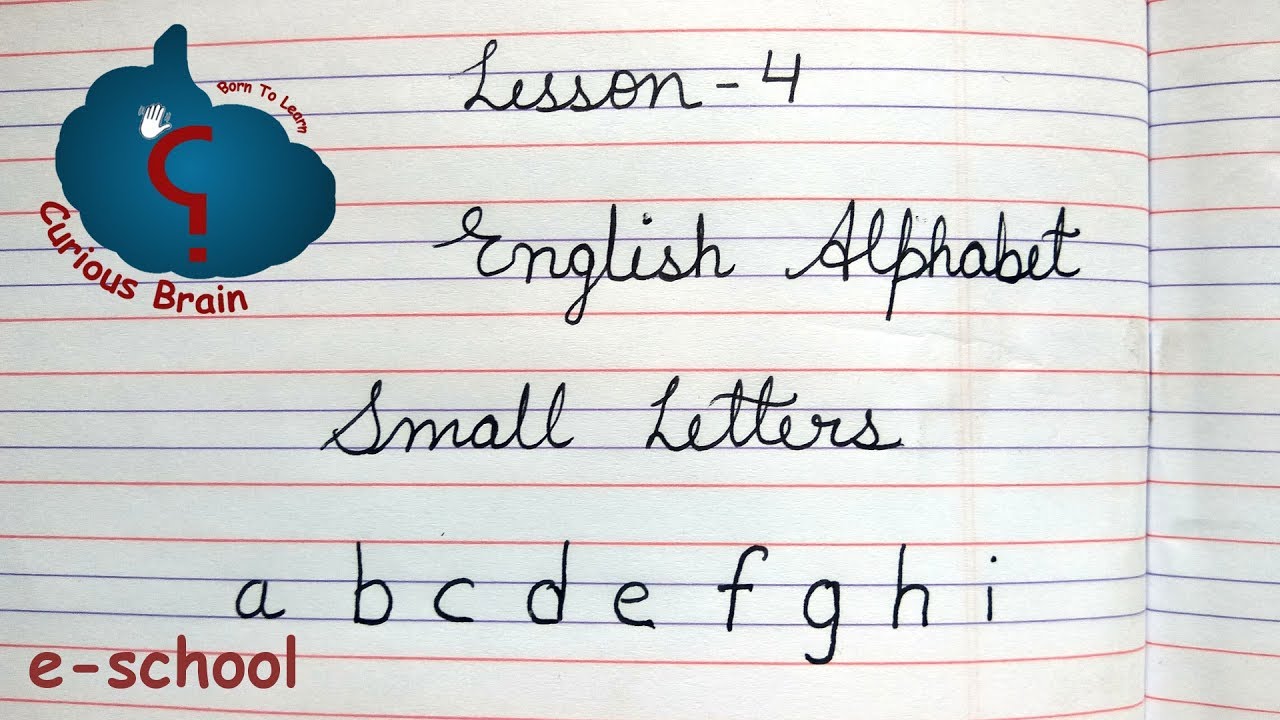 Born To Learn
Curious Brain
Lesson - 4
English Alphabet
Small Letters
a b c d e f g h i
e-school